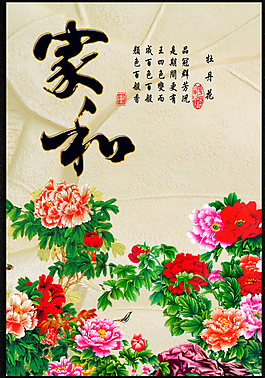 家和
牡丹花
品冠群芳沉
是期間更有
王四色變而
成百色百般
顏色百般香